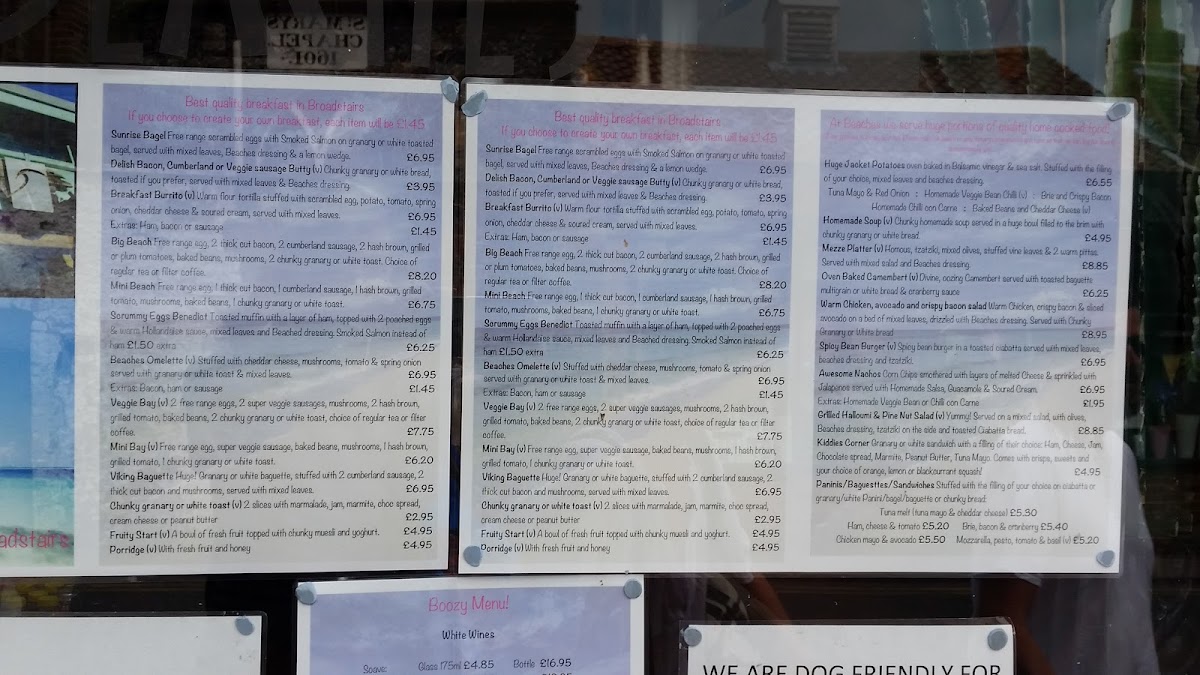 ST MARYS
CHAPEL
1601
Best quality breakfast in Broadstairs
If you choose to create your own breakfast, each item will be £1.45
Sunrise Bagel Free range scrambled eggs with Smoked Salmon on granary or white toasted
bagel, served with mixed leaves, Beaches dressing & a lemon wedge. £6.95
Delish Bacon, Cumberland or Veggie sausage Butty (v) Chunky granary or white bread,
toasted if you prefer, served with mixed leaves & Beaches dressing. £3.95
Breakfast Burrito (v) Warm flour tortilla stuffed with scrambled egg, potato, tomato, spring
onion, cheddar cheese & soured cream, served with mixed leaves. £6.95
Extras: Ham, bacon or sausage £1.45
Big Beach Free range egg, 2 thick cut bacon, 2 cumberland sausage, 2 hash brown, grilled
or plum tomatoes, baked beans, mushrooms, 2 chunky granary or white toast. Choice of
regular tea or filter coffee. £8.20
Mini Beach Free range egg, 1 thick cut bacon, 1 cumberland sausage, 1 hash brown, grilled
tomato, mushrooms, baked beans, 1 chunky granary or white toast. £6.75
Scrummy Eggs Benedict Toasted muffin with a layer of ham, topped with 2 poached eggs
& warm Hollandaise sauce, mixed leaves and Beaches dressing. Smoked Salmon instead of
ham £1.50 extra £6.25
Beaches Omelette (v) Stuffed with cheddar cheese, mushrooms, tomato & spring onion
served with granary or white toast & mixed leaves. £6.95
Extras: Bacon, ham or sausage £1.45
Veggie Bay (v) 2 free range eggs, 2 super veggie sausages, mushrooms, 2 hash brown,
grilled tomato, baked beans, 2 chunky granary or white toast, choice of regular tea or filter
coffee. £7.75
Mini Bay (v) Free range egg, super veggie sausage, baked beans, mushrooms, 1 hash brown,
grilled tomato, 1 chunky granary or white toast. £6.20
Viking Baguette Huge! Granary or white baguette, stuffed with 2 cumberland sausage, 2
thick cut bacon and mushrooms, served with mixed leaves. £6.95
Chunky granary or white toast (v) 2 slices with marmalade, jam, marmite, choc spread,
cream cheese or peanut butter £2.95
Fruity Start (v) A bowl of fresh fruit topped with chunky muesli and yoghurt. £4.95
Porridge (v) With fresh fruit and honey £4.95
adstairs
Best quality breakfast in Broadstairs
If you choose to create your own breakfast, each item will be £1.45
Sunrise Bagel Free range scrambled eggs with Smoked Salmon on granary or white toasted
bagel, served with mixed leaves, Beaches dressing & a lemon wedge. £6.95
Delish Bacon, Cumberland or Veggie sausage Butty (v) Chunky granary or white bread,
toasted if you prefer, served with mixed leaves & Beaches dressing. £3.95
Breakfast Burrito (v) Warm flour tortilla stuffed with scrambled egg, potato, tomato, spring
onion, cheddar cheese & soured cream, served with mixed leaves. £6.95
Extras: Ham, bacon or sausage £1.45
Big Beach Free range egg, 2 thick cut bacon, 2 cumberland sausage, 2 hash brown, grilled
or plum tomatoes, baked beans, mushrooms, 2 chunky granary or white toast. Choice of
regular tea or filter coffee. £8.20
Mini Beach Free range egg, 1 thick cut bacon, 1 cumberland sausage, 1 hash brown, grilled
tomato, mushrooms, baked beans, 1 chunky granary or white toast. £6.75
Scrummy Eggs Benedict Toasted muffin with a layer of ham, topped with 2 poached eggs
& warm Hollandaise sauce, mixed leaves and Beaches dressing. Smoked Salmon instead of
ham £1.50 extra £6.25
Beaches Omelette (v) Stuffed with cheddar cheese, mushrooms, tomato & spring onion
served with granary or white toast & mixed leaves. £6.95
Extras: Bacon, ham or sausage £1.45
Veggie Bay (v) 2 free range eggs, 2 super veggie sausages, mushrooms, 2 hash brown,
grilled tomato, baked beans, 2 chunky granary or white toast, choice of regular tea or filter
coffee. £7.75
Mini Bay (v) Free range egg, super veggie sausage, baked beans, mushrooms, 1 hash brown,
grilled tomato, 1 chunky granary or white toast. £6.20
Viking Baguette Huge! Granary or white baguette, stuffed with 2 cumberland sausage, 2
thick cut bacon and mushrooms, served with mixed leaves. £6.95
Chunky granary or white toast (v) 2 slices with marmalade, jam, marmite, choc spread,
cream cheese or peanut butter £2.95
Fruity Start (v) A bowl of fresh fruit topped with chunky muesli and yoghurt. £4.95
Porridge (v) With fresh fruit and honey £4.95
At Beaches we serve huge portions of quality home cooked food,
Huge Jacket Potatoes oven baked in Balsamic vinegar & sea salt. Stuffed with the filling
of your choice, mixed leaves and beaches dressing. £6.55
Tuna Mayo & Red Onion : Homemade Veggie Bean Chilli (v) : Brie and Crispy Bacon
Homemade Chilli con Carne : Baked Beans and Cheddar Cheese (v)
Homemade Soup (v) Chunky homemade soup served in a huge bowl filled to the brim with
chunky granary or white bread £4.95
Mezze Platter (v) Homous, tzatziki, mixed olives, stuffed vine leaves & 2 warm pittas.
Served with mixed salad and Beaches dressing. £8.85
Oven Baked Camembert (v) Divine, oozing Camembert served with toasted baguette
multigrain or white bread & cranberry sauce £6.25
Warm Chicken, avocado and crispy bacon salad Warm Chicken, crispy bacon & sliced
avocado on a bed of mixed leaves, drizzled with Beaches dressing. Served with Chunky
Granary or White bread £8.95
Spicy Bean Burger (v) Spicy bean burger in a toasted ciabatta served with mixed leaves,
beaches dressing and tzatziki. £6.95
Awesome Nachos Corn Chips smothered with layers of melted Cheese & sprinkled with
Jalapenos served with Homemade Salsa, Guacamole & Soured Cream. £6.95
Extras: Homemade Veggie Bean or Chilli con Carne £1.95
Grilled Halloumi & Pine Nut Salad (v) Yummy! Served on a mixed salad, with olives,
Beaches dressing, tzatziki on the side and toasted Ciabatta bread. £8.85
Kiddies Corner Granary or white sandwich with a filling of their choice: Ham, Cheese, Jam,
Chocolate spread, Marmite, Peanut Butter, Tuna Mayo. Comes with crisps, sweets and
your choice of orange, lemon or blackcurrant squash! £4.95
Paninis/Baguettes/Sandwiches Stuffed with the filling of your choice on ciabatta or
granary/white Panini/bagel/baguette or chunky bread:
Tuna melt (tuna mayo & cheddar cheese) £5.30
Ham, cheese & tomato £5.20 Brie, bacon & cranberry £5.40
Chicken mayo & avocado £5.50 Mozzarella, pesto, tomato & basil (v) £5.20
Boozy Menu!
White Wines
Soave: Glass 175ml £4.85 Bottle £16.95
WE ARE DOG FRIENDLY FOR